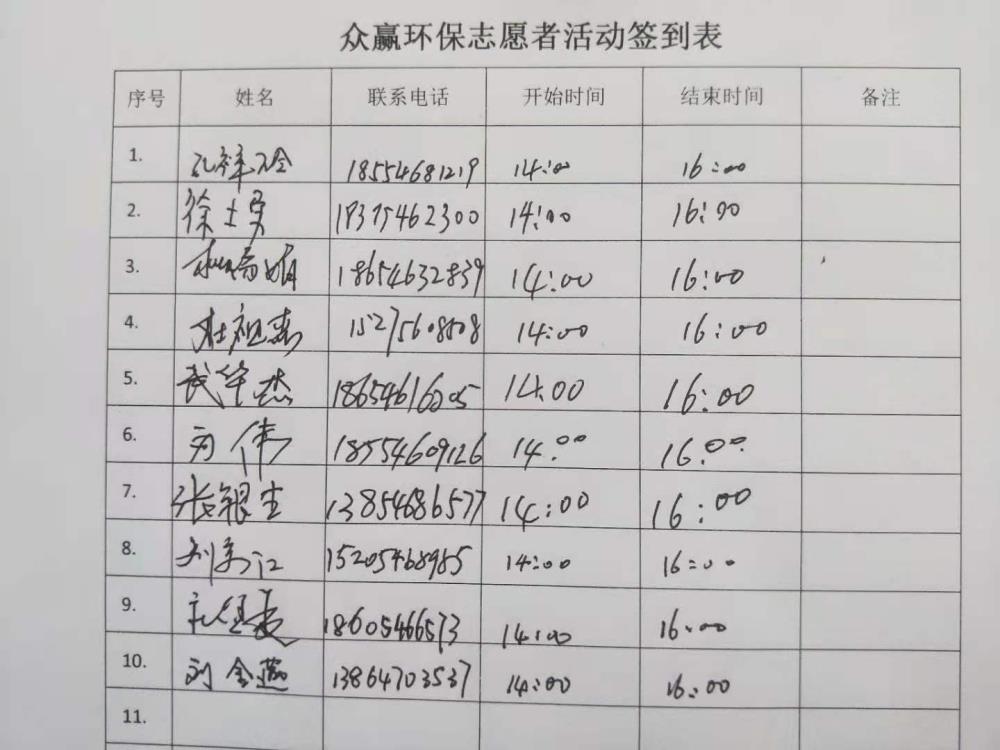 众赢环保志愿者活动签到表
序号 姓名 联系电话 开始时间 结束时间 备注
1. 18554681219 14:00 16:00
2. 徐士勇 14:00 16:00
3. 18654632839 14:00 16:00
4. 杜祖燕 15275608508 14:00 16:00
5. 武华杰 18654616205 14:00 16:00
6. 伟 18554609126 14:00 16:00
7. 张银生 13854686577 14:00 16:00
8. 刘 江 15205468985 14:00 16:00
9. 18605466573 14:00 16:00
10. 刘金 13864703537 14:00 16:00
11.